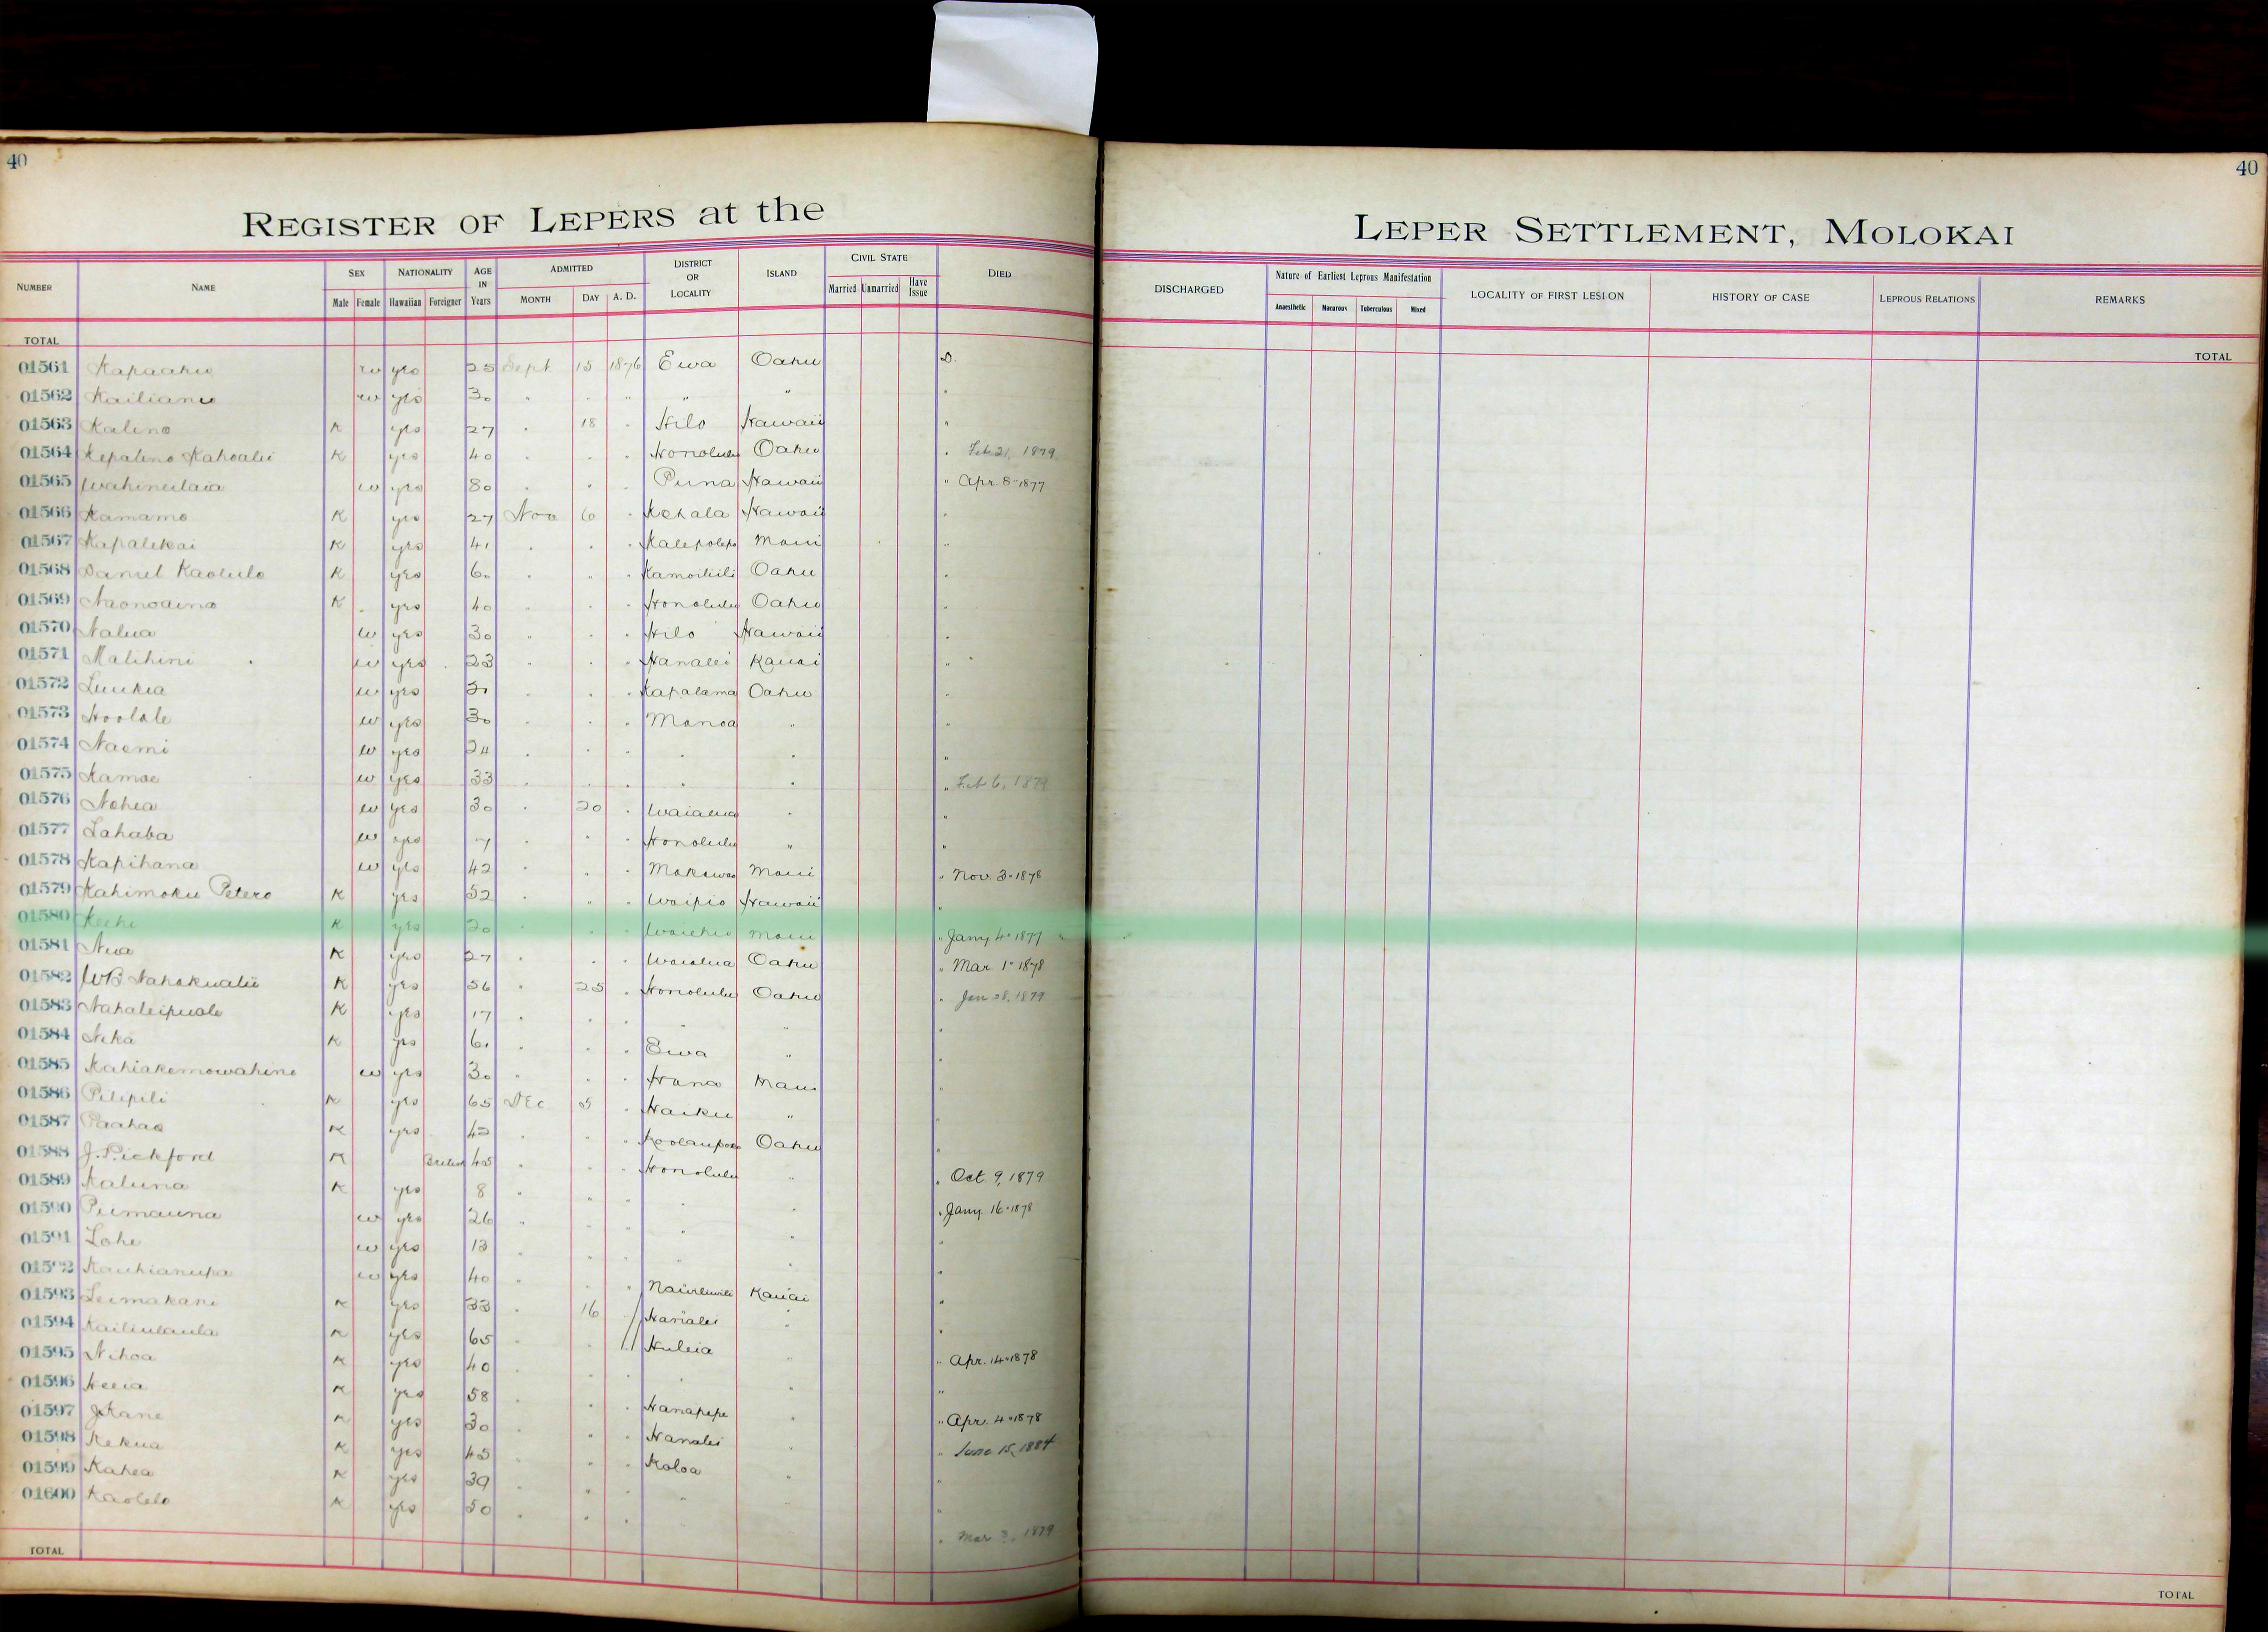 40
40
REGISTER OF LEPERS at the
LEPER SETTLEMENT, MOLOKAI
NUMBER NAME SEX Male Female NATIONALITY Hawaiian Foreigner AGE IN Years ADMITTED MONTH DAY A. D. DISTRICT OR LOCALITY ISLAND CIVIL STATE Married Unmarried Have Issue DIED
DISCHARGED Nature of Earliest Leprous Manifestation Anaesthetic Macurous Tuberculous Mixed LOCALITY OF FIRST LESION HISTORY OF CASE LEPROUS RELATIONS REMARKS
TOTAL
TOTAL
01561 Kapaahu w yes 25 Sept 15 1876 Ewa Oahu D.
01562 Kailianu w yes 30 " " " " " "
01563 Kalino K yes 27 " 18 " Hilo Hawaii "
01564 Kepalino Kahoalii K yes 40 " " " Honolulu Oahu " Feb 21, 1879
01565 Wahineilaia w yes 80 " " " Puna Hawaii " Apr. 8" 1877
01566 Kamamo K yes 27 Nov 6 " Kohala Hawaii "
01567 Kapalekai K yes 41 " " " Kalepolepo Maui "
01568 Daniel Kaolulo K yes 60 " " " Kamoiliili Oahu "
01569 Naonoaina K yes 40 " " " Honolulu Oahu "
01570 Nalua w yes 30 " " " Hilo Hawaii "
01571 Malihini w yes 23 " " " Hanalei Kauai "
01572 Luukia w yes " " " Kapalama Oahu "
01573 Hoolale w yes 30 " " " Manoa " "
01574 Naomi w yes 24 " " " " " "
01575 Kamae w yes 33 " " " " " " Feb 6, 1879
01576 Nohea w yes 30 " 20 " Waialua " "
01577 Lahaba w yes 7 " " " Honolulu " "
01578 Kapihana w yes 42 " " " Makawao Maui " Nov. 3" 1878
01579 Kahimoku Petero K yes 52 " " " Waipio Hawaii "
01580 Keehi K yes 20 " " " Waiehu Maui " Jany 4" 1877
01581 Nua K yes 27 " " " Waialua Oahu " Mar. 1" 1878
01582 WB Nahokualii K yes 56 " 25 " Honolulu Oahu " Jan 28, 1879
01583 Nahaleipuole K yes 17 " " " " " "
01584 Nika K yes 61 " " " Ewa " "
01585 Kahiakemowahine w yes 30 " " " Hana Maui "
01586 Pilipili K yes 65 Dec 5 " Haiku " "
01587 Paahao K yes 42 " " " Koolaupoko Oahu "
01588 J. Pickford K British 45 " " " Honolulu " " Oct. 9, 1879
01589 Kaluna K yes 8 " " " " " " Jany 16" 1878
01590 Puimauna w yes 26 " " " " " "
01591 Lohe w yes 13 " " " " " "
01592 Kauhianupa w yes 40 " " " Nawiliwili Kauai "
01593 Leimakani K yes 33 " 16 " Hanalei " "
01594 Kailiulaula K yes 65 " " " Huleia " " Apr. 14" 1878
01595 Nihoa K yes 40 " " " " " "
01596 Heeia K yes 58 " " " Hanapepe " " Apr. 4" 1878
01597 J Kane K yes 30 " " " Hanalei " " June 15, 1884
01598 Kekua K yes 45 " " " Koloa " "
01599 Kahea K yes 39 " " " " " "
01600 Kaolelo K yes 50 " " " " Mar 3, 1879
TOTAL
TOTAL